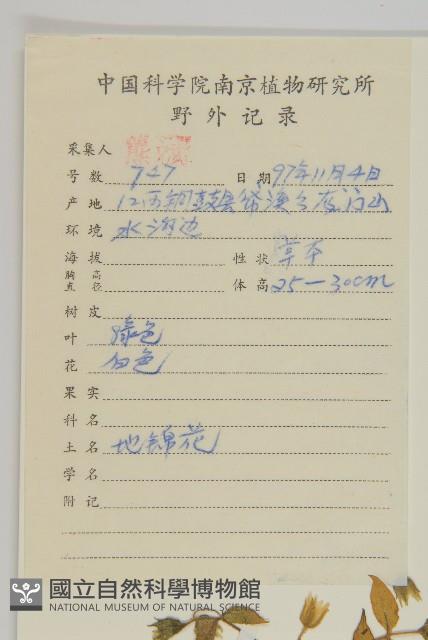 中国科学院南京植物研究所
野外记录
采集人 熊
号数 747 日期 97年11月4日
产地 江西铜鼓县
环境 水沟边
海拔 性状 草本
胸高直径 体高 25—30cm
树皮
叶 绿色
花 白色
果实
科名
土名 地锦花
学名
附记
國立自然科學博物館
NATIONAL MUSEUM OF NATURAL SCIENCE